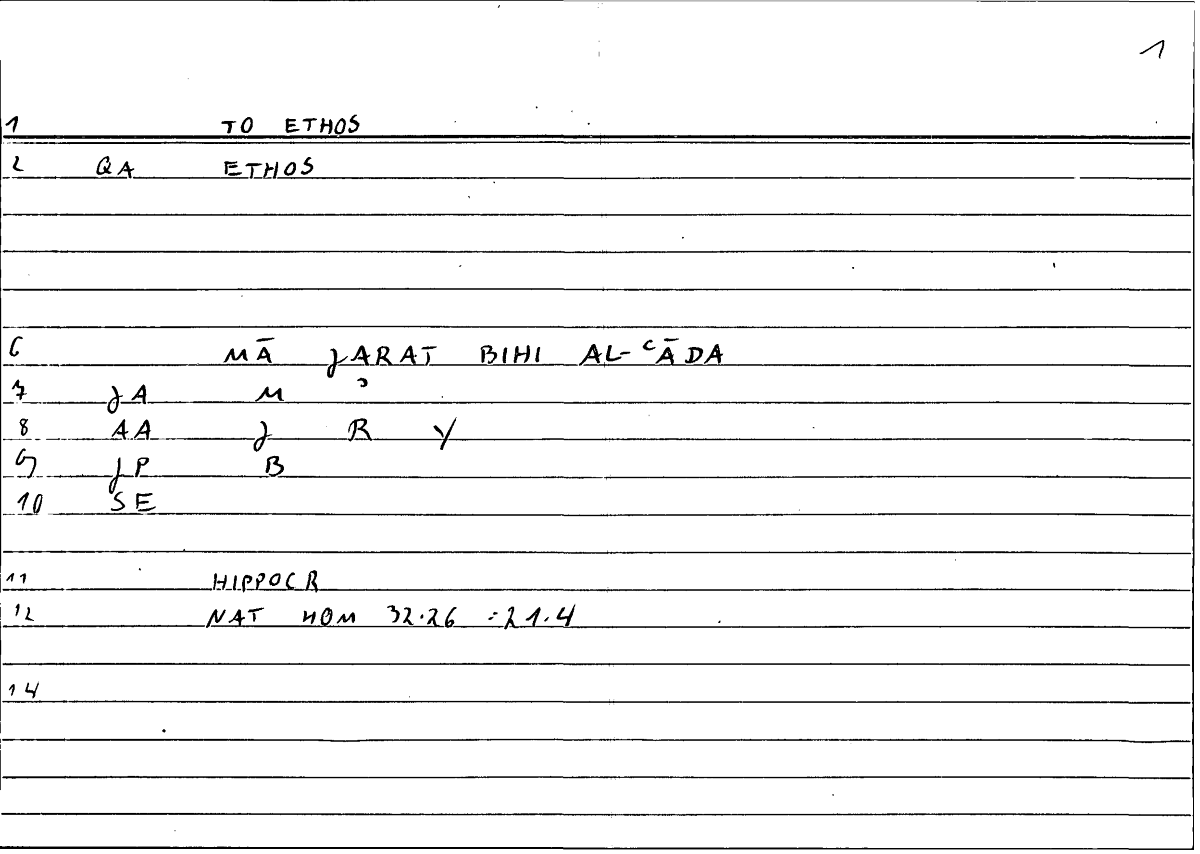 1
1 TO ETHOS
2 QA ETHOS
6 MĀ JARAT BIHI AL-ʿĀDA
7 JA M ʾ
8 AA J R Y
9 JP B
10 SE
11 HIPPOCR
12 NAT HOM 32.26 = 21.4
14